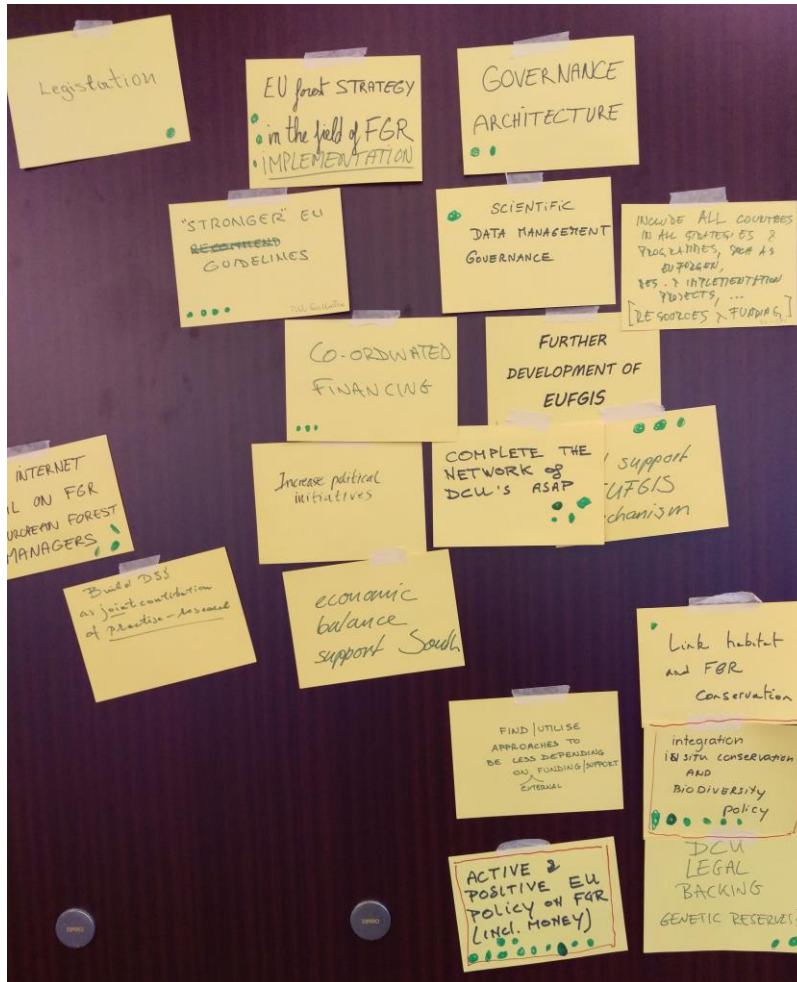 Legislation
EU forest STRATEGY
in the field of FGR
IMPLEMENTATION
GOVERNANCE
ARCHITECTURE
"STRONGER" EU
RECOMMEND
GUIDELINES
SCIENTIFIC
DATA MANAGEMENT
GOVERNANCE
INCLUDE ALL COUNTRIES
IN ALL STRATEGIES &
PROGRAMMES, SUCH AS
EUFORGEN,
RES. & IMPLEMENTATION
PROJECTS, ...
[RESOURCES & FUNDING]
CO-ORDINATED
FINANCING
FURTHER
DEVELOPMENT OF
EUFGIS
INTERNET
ON FGR
FOREST
MANAGERS
Increase political
initiatives
COMPLETE THE
NETWORK of
DCU's ASAP
support
EUFGIS
Build DSS
as joint contribution
of practise-research
economic
balance
support South
Link habitat
and FGR
Conservation
FIND/UTILISE
APPROACHES TO
BE LESS DEPENDING
ON FUNDING/SUPPORT
EXTERNAL
integration
in situ conservation
AND
BioDiversity
policy
ACTIVE &
POSITIVE EU
POLICY ON FGR
(INCL. MONEY)
DCU
LEGAL
BACKING
GENETIC RESERVES